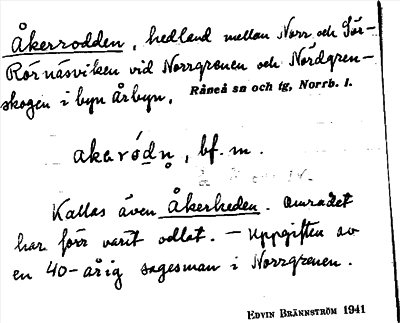 Åkerrodden, hedland mellan Norr och Sör-
Rörnäsviken vid Norrgrenen och Nordgren-
skogen i byn Årbyn. Råneå sn och tg, Norrb. l.
akaródn, bf. m.
Kallas även Åkerheden. Området
har förr varit odlat. – Uppgiften av
en 40-årig sagesman i Norrgrenen.
EDVIN BRÄNNSTRÖM 1941